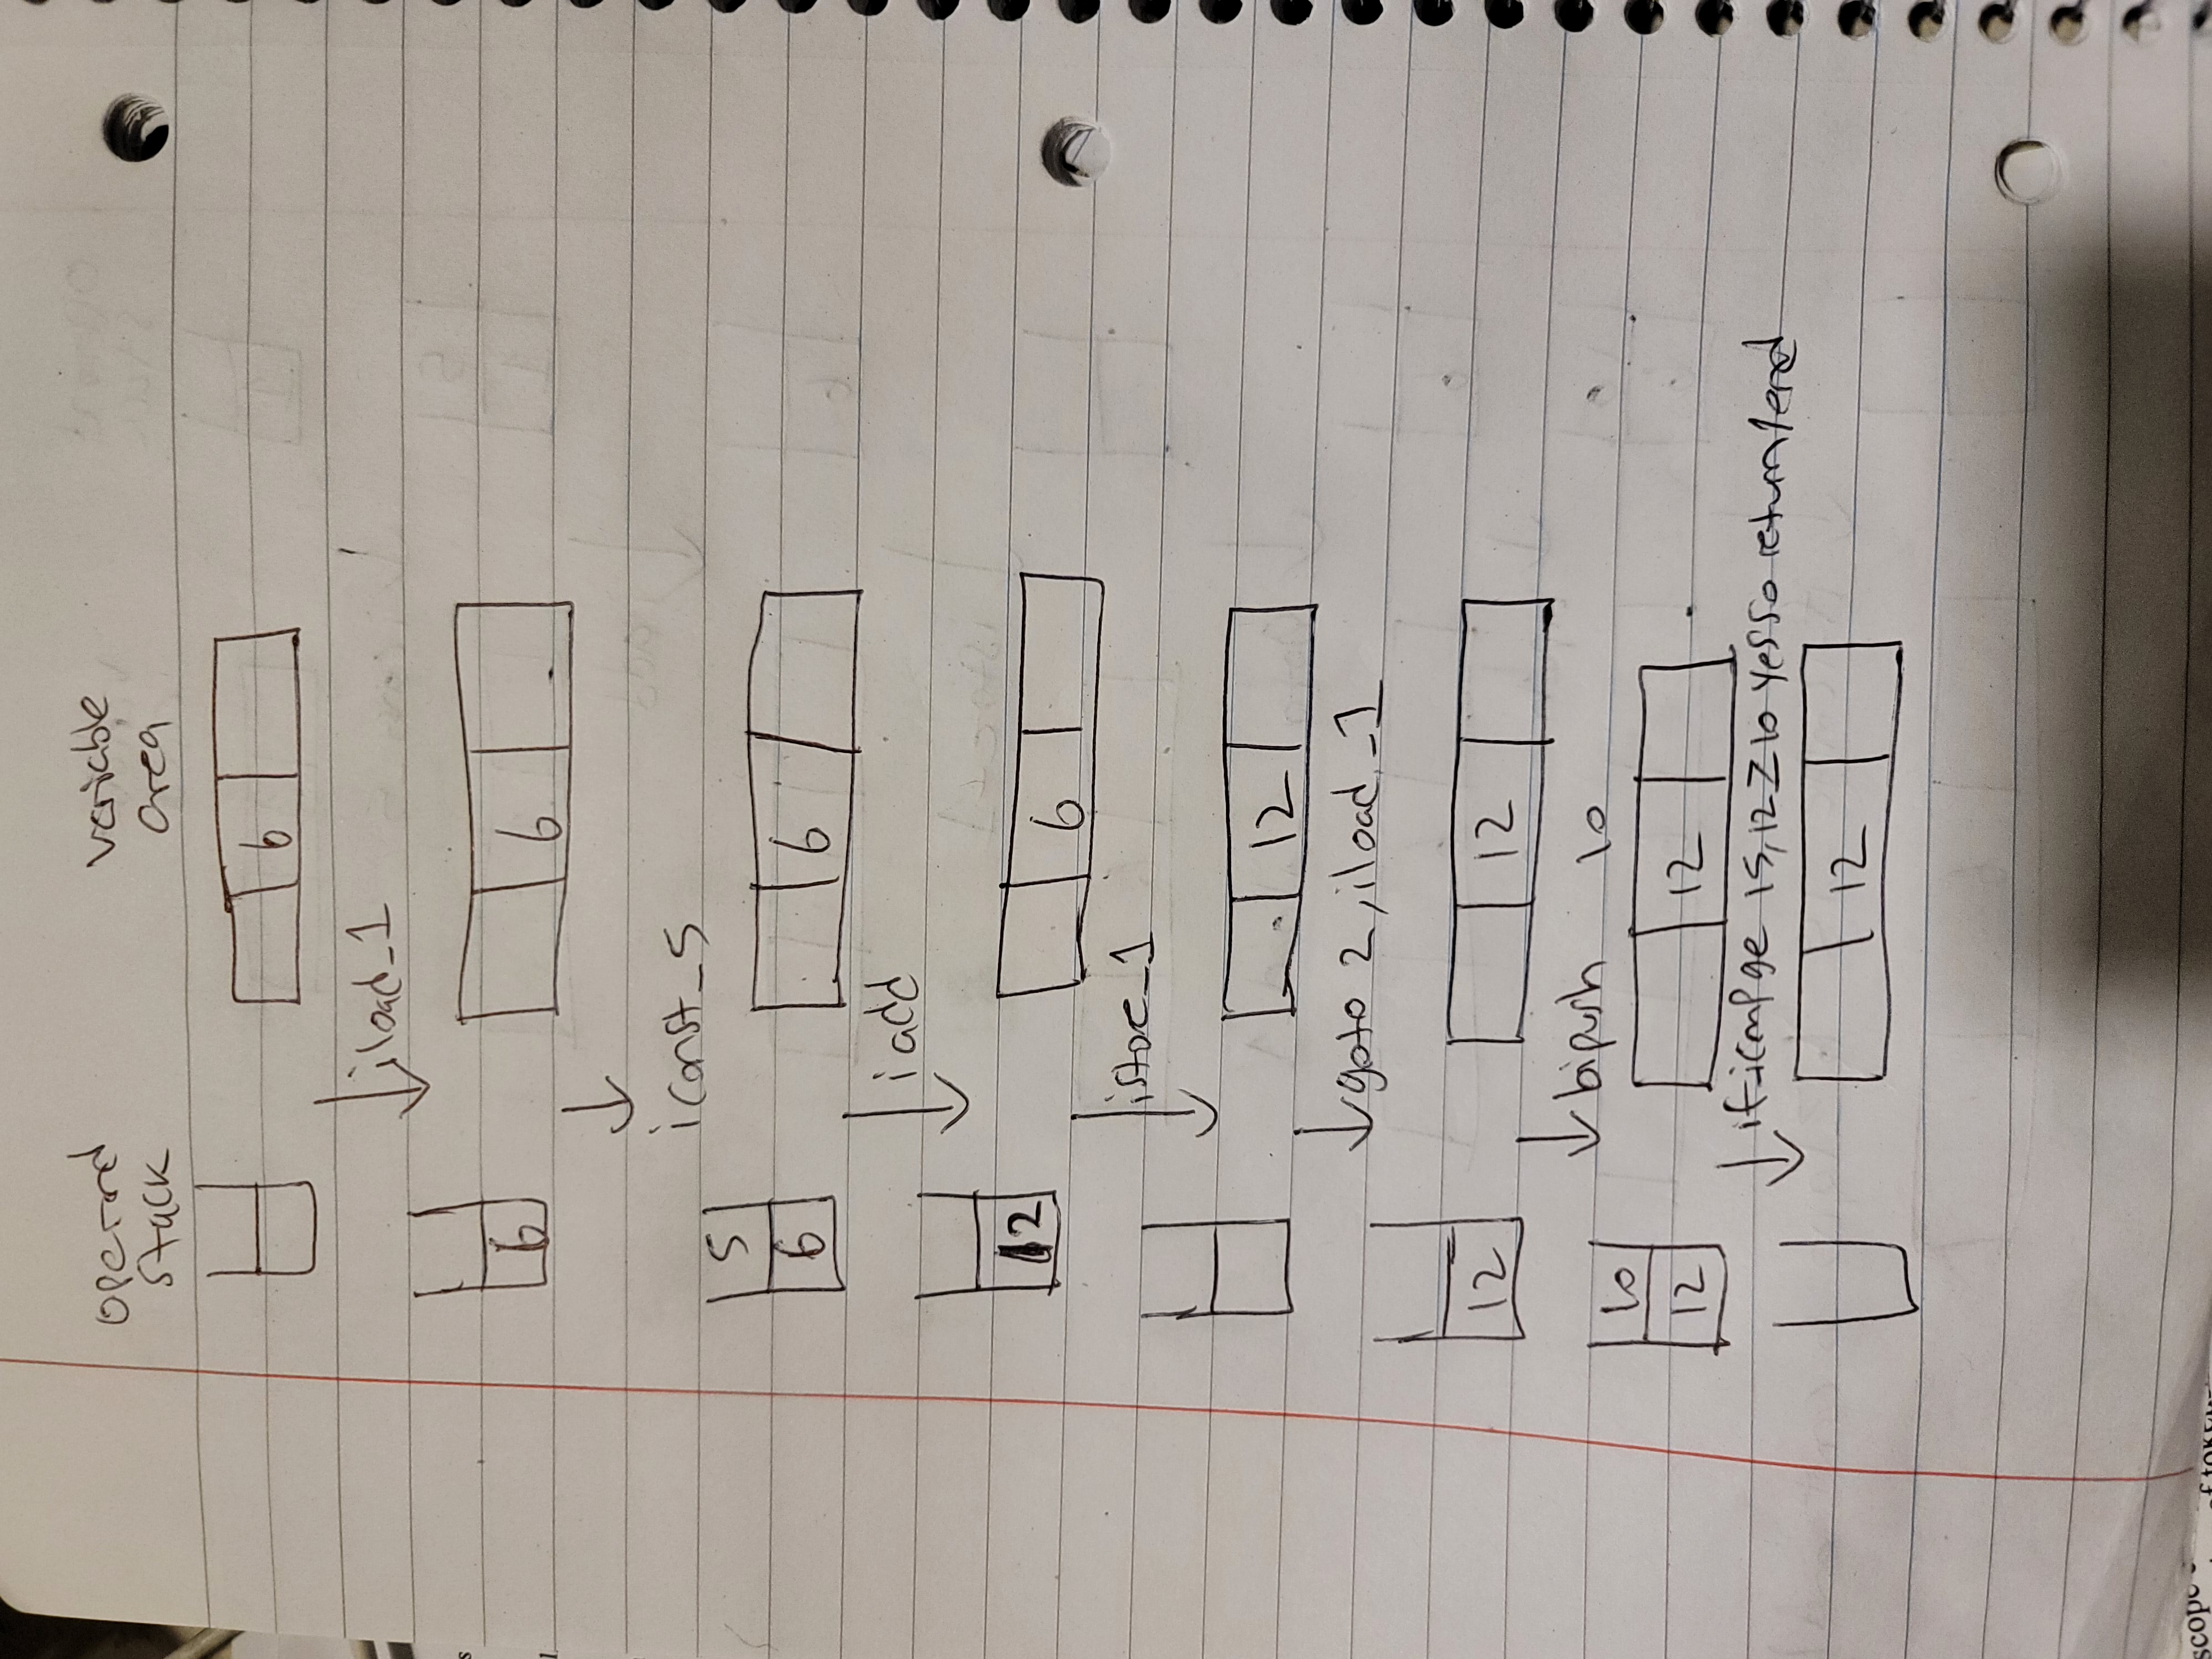 operand variable
stack area
6
iload_1
6 6
iconst_5
5
6 6
iadd
12 6
istore_1
12
goto 2, iload_1
12 12
bipush 10
10
12 12
if_icmpge 15, 12 ≥ 10 yes so return/end
12
scope